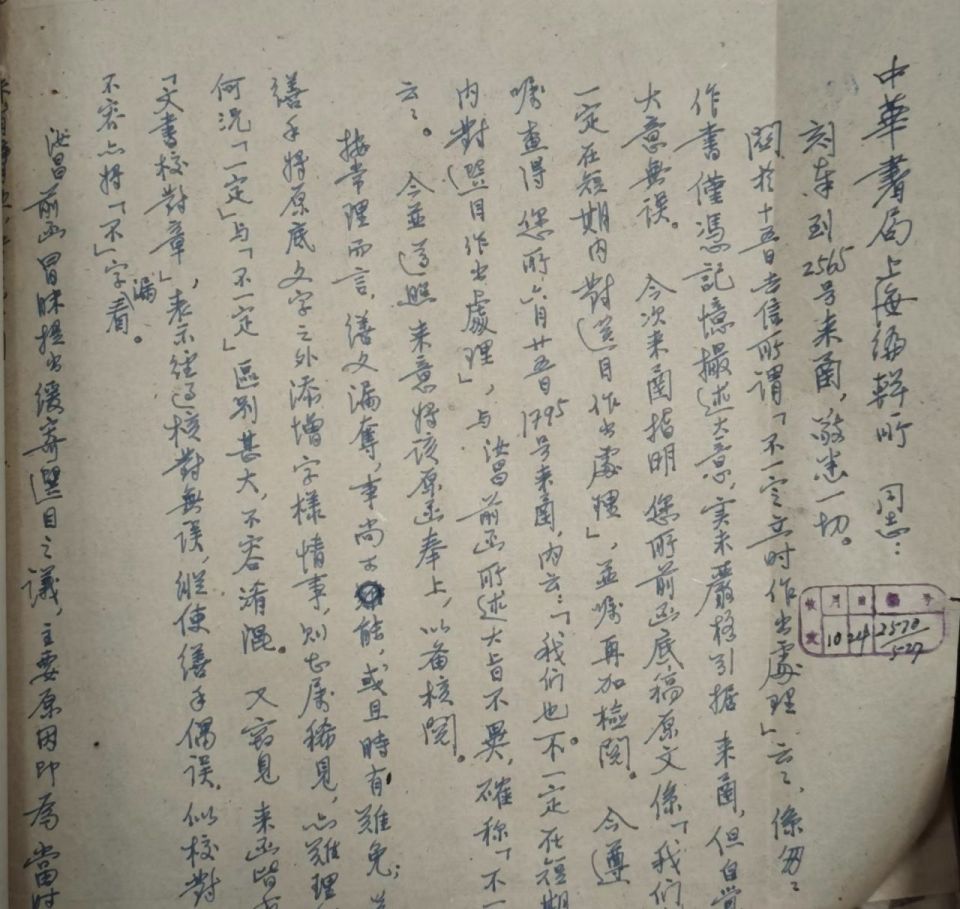 中華書局上海編輯所 同志：
刻奉到2565号来函，敬悉一切。
關於十五日去信所謂「不一定立时作出處理」云々，係匆々
作書僅憑記憶撮述大意，实未嚴格引据 来函，但自覚
大意無誤。 今次来函指明 您所前函底稿原文係「我们
一定在短期内對選目作出處理」，並嘱再加檢閱。 今遵
嘱查得 您所六月廿五日1795号来函，内云：「我们也不一定在短期
内對選目作出處理」，与 汝昌前函所述大旨不異，確称「不一
云々。 今並遵照 来意将该原函奉上，以備核閱。
按常理而言，繕文漏奪，事尚可能，或且時有難免；
繕手将原底文字之外添增字樣情事，则上属稀見，亦難理
何況「一定」与「不一定」區别甚大，不容淆混。 又竊見 来函皆
「文書校對章」，表示經過核對無误，縱使繕手偶误，似校對
不容亦将「不」字漏看。
汝昌前函冒昧提出緩寄選目之議，主要原因即為當时
收文 月 日 号
10 24 2570/527